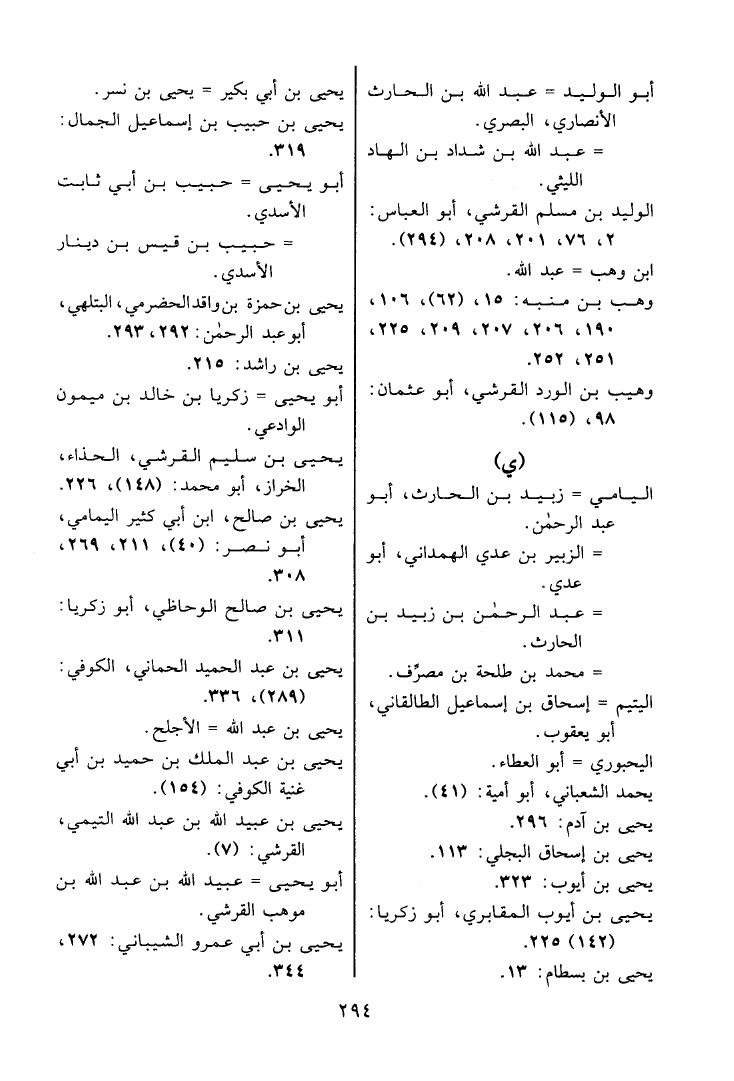 أبو الوليد = عبد الله بن الحارث
الأنصاري، البصري.
= عبد الله بن شداد بن الهاد
الليثي.
الوليد بن مسلم القرشي، أبو العباس:
٢، ٧٦، ٢٠١، ٢٠٨، (٢٩٤).
ابن وهب = عبد الله.
وهب بن منبه: ١٥، (٦٢)، ١٠٦،
١٩٠، ٢٠٦، ٢٠٧، ٢٠٩، ٢٢٥،
٢٥١، ٢٥٢.
وهيب بن الورد القرشي، أبو عثمان:
٩٨، (١١٥).
(ي)
اليامي = زبيد بن الحارث، أبو
عبد الرحمٰن.
= الزبير بن عدي الهمداني، أبو
عدي.
= عبد الرحمٰن بن زبيد بن
الحارث.
= محمد بن طلحة بن مصرِّف.
اليتيم = إسحاق بن إسماعيل الطالقاني،
أبو يعقوب.
اليحبوري = أبو العطاء.
يحمد الشعباني، أبو أمية: (٤١).
يحيى بن آدم: ٢٩٦.
يحيى بن إسحاق البجلي: ١١٣.
يحيى بن أيوب: ٣٢٣.
يحيى بن أيوب المقابري، أبو زكريا:
(١٤٢) ٢٢٥.
يحيى بن بسطام: ١٣.
يحيى بن أبي بكير = يحيى بن نسر.
يحيى بن حبيب بن إسماعيل الجمال:
٣١٩.
أبو يحيى = حبيب بن أبي ثابت
الأسدي.
= حبيب بن قيس بن دينار
الأسدي.
يحيى بن حمزة بن واقد الحضرمي، البتلهي،
أبو عبد الرحمٰن: ٢٩٢، ٢٩٣.
يحيى بن راشد: ٢١٥.
أبو يحيى = زكريا بن خالد بن ميمون
الوادعي.
يحيى بن سليم القرشي، الحذاء،
الخراز، أبو محمد: (١٤٨)، ٢٢٦.
يحيى بن صالح، ابن أبي كثير اليمامي،
أبو نصر: (٤٠)، ٢١١، ٢٦٩،
٣٠٨.
يحيى بن صالح الوحاظي، أبو زكريا:
٣١١.
يحيى بن عبد الحميد الحماني، الكوفي:
(٢٨٩)، ٣٣٦.
يحيى بن عبد الله = الأجلح.
يحيى بن عبد الملك بن حميد بن أبي
غنية الكوفي: (١٥٤).
يحيى بن عبيد الله بن عبد الله التيمي،
القرشي: (٧).
أبو يحيى = عبيد الله بن عبد الله بن
موهب القرشي.
يحيى بن أبي عمرو الشيباني: ٢٧٢،
٣٤٤.
٢٩٤